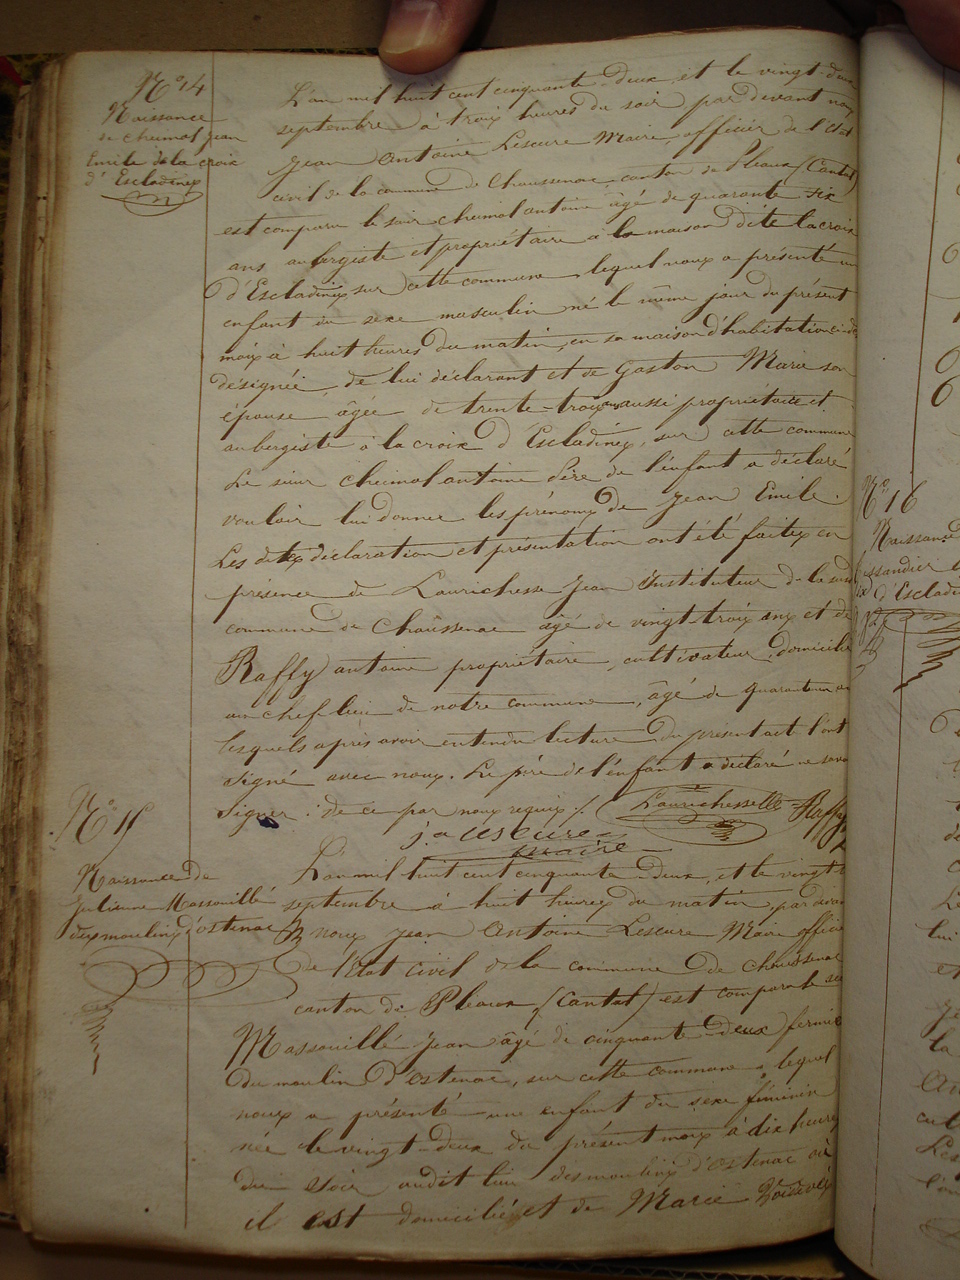 N° 14
Naissance
de cheimol jean
Emile de la croix
d'Escladinex
L'an mil huit cent cinquante-deux, et le vingt-deux
septembre à troix heures du soir par devant nous
jean Antoine Lescure Maire, officier de l'Etat
civil de la commune de Chaussenac canton de Pleaux (Cantal)
est comparu le sieur cheimol antoine âgé de quarante six
ans aubergiste et propriétaire à la maison dite la croix
d'Escladinex sur cette commune, lequel noux a présenté un
enfant du sexe masculin né le même jour du présent
moix à huit heures du matin, en sa maison d'habitation
désignée, de lui déclarant et de Gaston Marie son
épouse âgée de trente-troix ans aussi propriétaire et
aubergiste à la croix d'Escladinex, sur cette commune
Le sieur cheimol antoine père de l'enfant a déclaré
vouloir lui donner les prénomx de jean Emile.
Les ditex déclaration et présentation ont été faitex en
présence de Laurichesse jean Instituteur de la susd
commune de Chaussenac âgé de vingt troix anx et de
Raffy antoine propriétaire, cultivateur, domicilié
au chef lieu de notre commune, âgé de quarante un an
lesquels après avoir entendu lecture du présent act l'ont
signé avec noux. Le père de l'enfant a déclaré ne savoir
signer : de ce par noux requix ./. Laurichesse Raffy
ja Lescure
maire
N° 15
Naissance de
Julienne Massouillé
dex moulinx d'ostenac
L'an mil huit cent cinquante-deux, et le vingt t
septembre à huit heurex du matin, par devan
noux jean Antoine Lescure Maire offici
de l'Etat civil de la commune de Chaussenac
canton de Pleaux (Cantal) est comparu le sie
Massouillé jean âgé de cinquante-deux fermie
du moulin d'ostenac, sur cette commune, lequel
noux a présenté une enfant du sexe féminin
née le vingt-deux du présent moix à dix heures
du soir audit lieu des moulinx d'ostenac où
il est domicilié, et de Marie
N° 16
Naissance